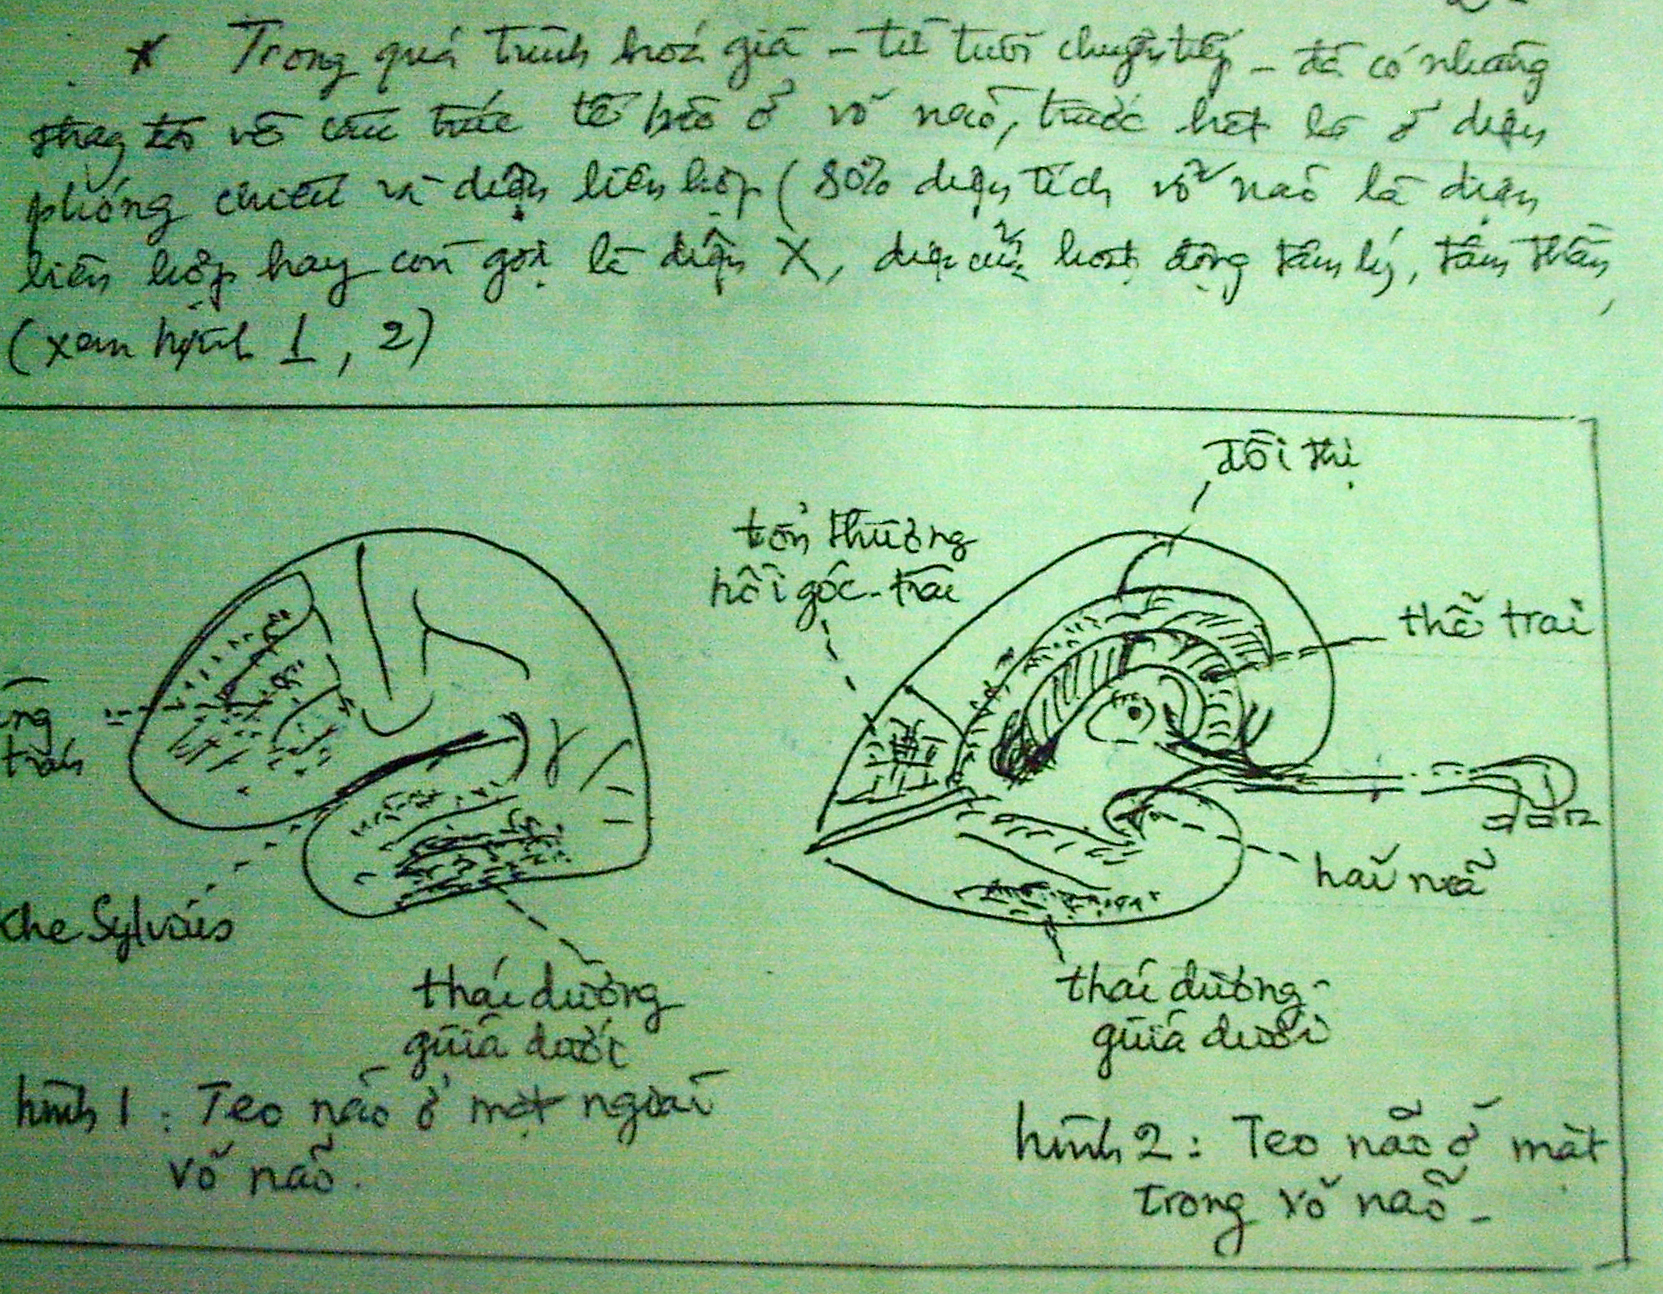 * Trong quá trình hoá già - từ tuổi chuyển tiếp - đã có những
thay đổi về cấu trúc tế bào ở vỏ não, trước hết là ở diện
phóng chiếu và diện liên hợp (80% diện tích vỏ não là diện
liên hợp hay còn gọi là diện X, diện của hoạt động tâm lý, tâm thần,
(xem hình 1, 2)
đồi thị
tổn thương
hồi góc-trái
thể trai
trán
hải mã
khe Sylvius
thái dương
giữa dưới
thái dương-
giữa dưới
hình 1: Teo não ở mặt ngoài
vỏ não.
hình 2: Teo não ở mặt
trong vỏ não -